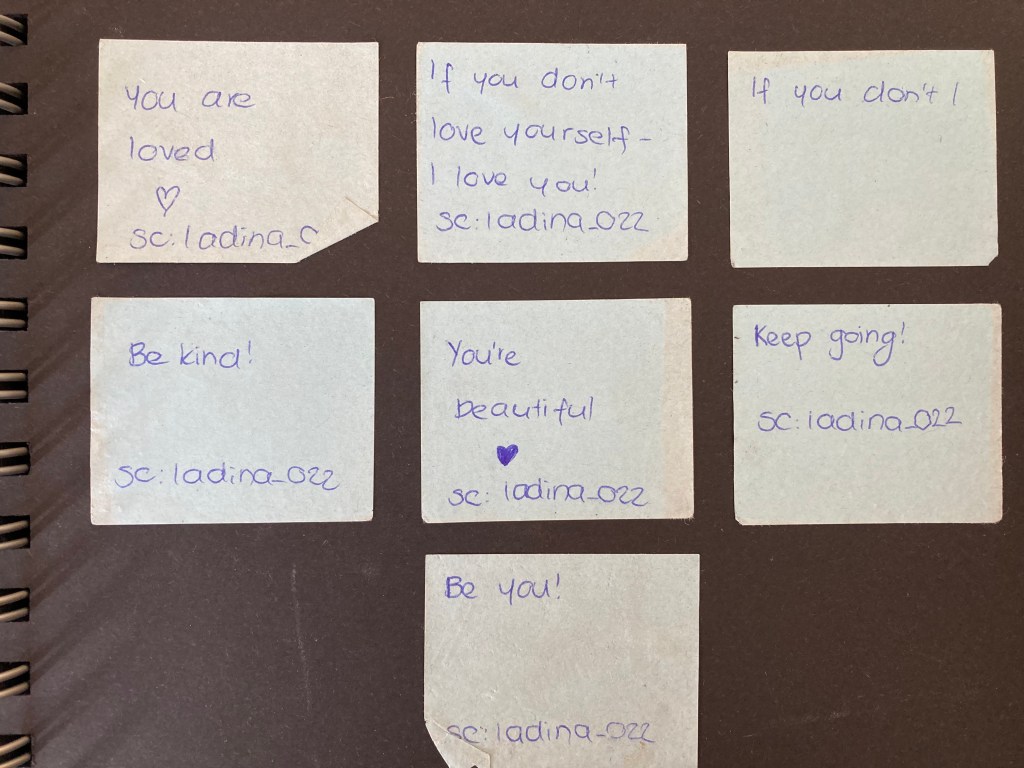 You are
loved
♡
sc: ladina_0
If you don't
love yourself -
I love you!
sc: ladina_022
If you don't l
Be kind!
sc: ladina_022
You're
beautiful
♥
sc: ladina_022
Keep going!
sc: ladina_022
Be you!
sc: ladina_022